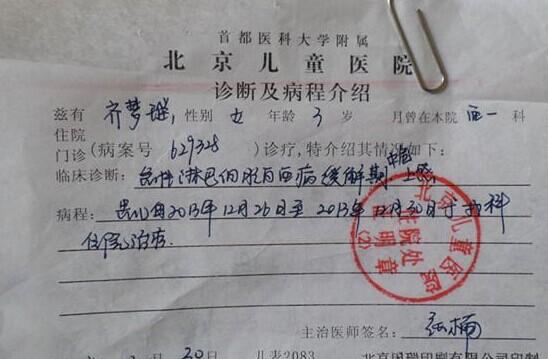 首都医科大学附属
北京儿童医院
诊断及病程介绍
兹有 齐梦 性别 女 年龄 3 岁 月曾在本院 血一 科
住院
门诊(病案号 629328 )诊疗,特介绍其情况如下:
临床诊断: 急性淋巴细胞白血病缓解期 中危 上感
病程: 患儿 2013年12月26日至2013年12月30日于我科
住院治疗.
北京儿童医院
住院处
证明章
(2)
主治医师签名: 张楠
30日 儿表2083 北京
印刷有限公司印制